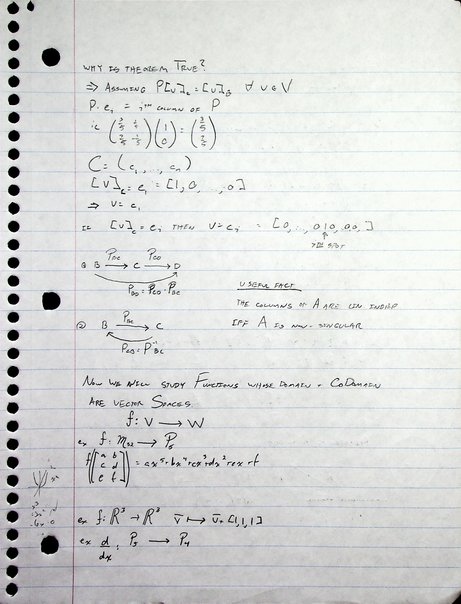 WHY IS THEOREM TRUE?
⇒ ASSUMING P[v]_c = [v]_B ∀ v ∈ V
P·e_i = i^TH COLUMN OF P
C = (c_1, ..., c_n)
[V]_c = e_1 = [1, 0, ..., 0]
⇒ V = c_1
IF [V]_c = e_i THEN V = c_i = [0, ..., 0 1 0, 0 0, ]
SPOT
① B —P_BC→ C —P_CD→ D
P_BD = P_CD · P_BC
USEFUL FACT
THE COLUMNS OF A ARE LIN INDEP
IFF A IS NON-SINGULAR
② B —P_BC→ C
P_CB = P^-1_BC
NOW WE WILL STUDY FUNCTIONS WHOSE DOMAIN + CODOMAIN
ARE VECTOR SPACES.
f: V → W
ex f: M_32 → P_5
f([a b
c d
e f]) = ax^5 + bx^4 + cx^3 + dx^2 + ex + f
ex f: R^3 → R^3 v ↦ v + [1, 1, 1]
ex d/dx: P_5 → P_4